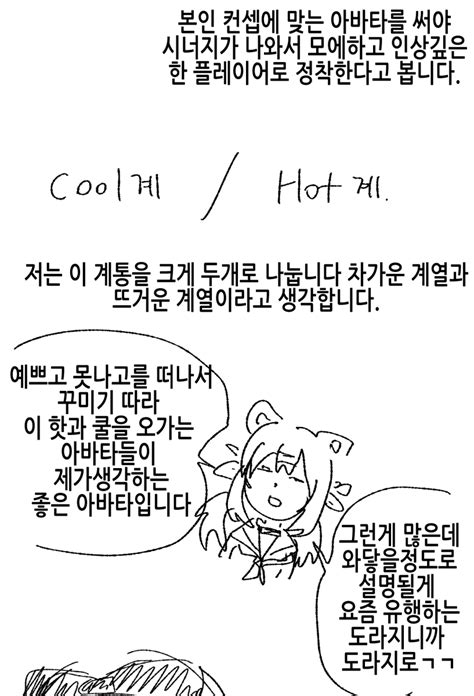 본인 컨셉에 맞는 아바타를 써야
시너지가 나와서 모에하고 인상깊은
한 플레이어로 정착한다고 봅니다.
Cool계 / Hot계.
저는 이 계통을 크게 두개로 나눕니다 차가운 계열과
뜨거운 계열이라고 생각합니다.
예쁘고 못나고를 떠나서
꾸미기 따라
이 핫과 쿨을 오가는
아바타들이
제가생각하는
좋은 아바타입니다
그런게 많은데
와닿을정도로
설명될게
요즘 유행하는
도라지니까
도라지로ㄱㄱ